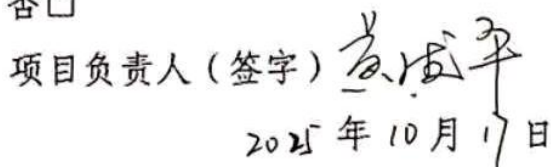 否□
项目负责人（签字）黄成平
2025年10月17日